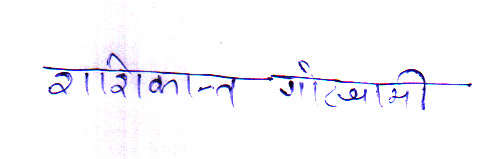 शाशिकान्त गोस्वामी